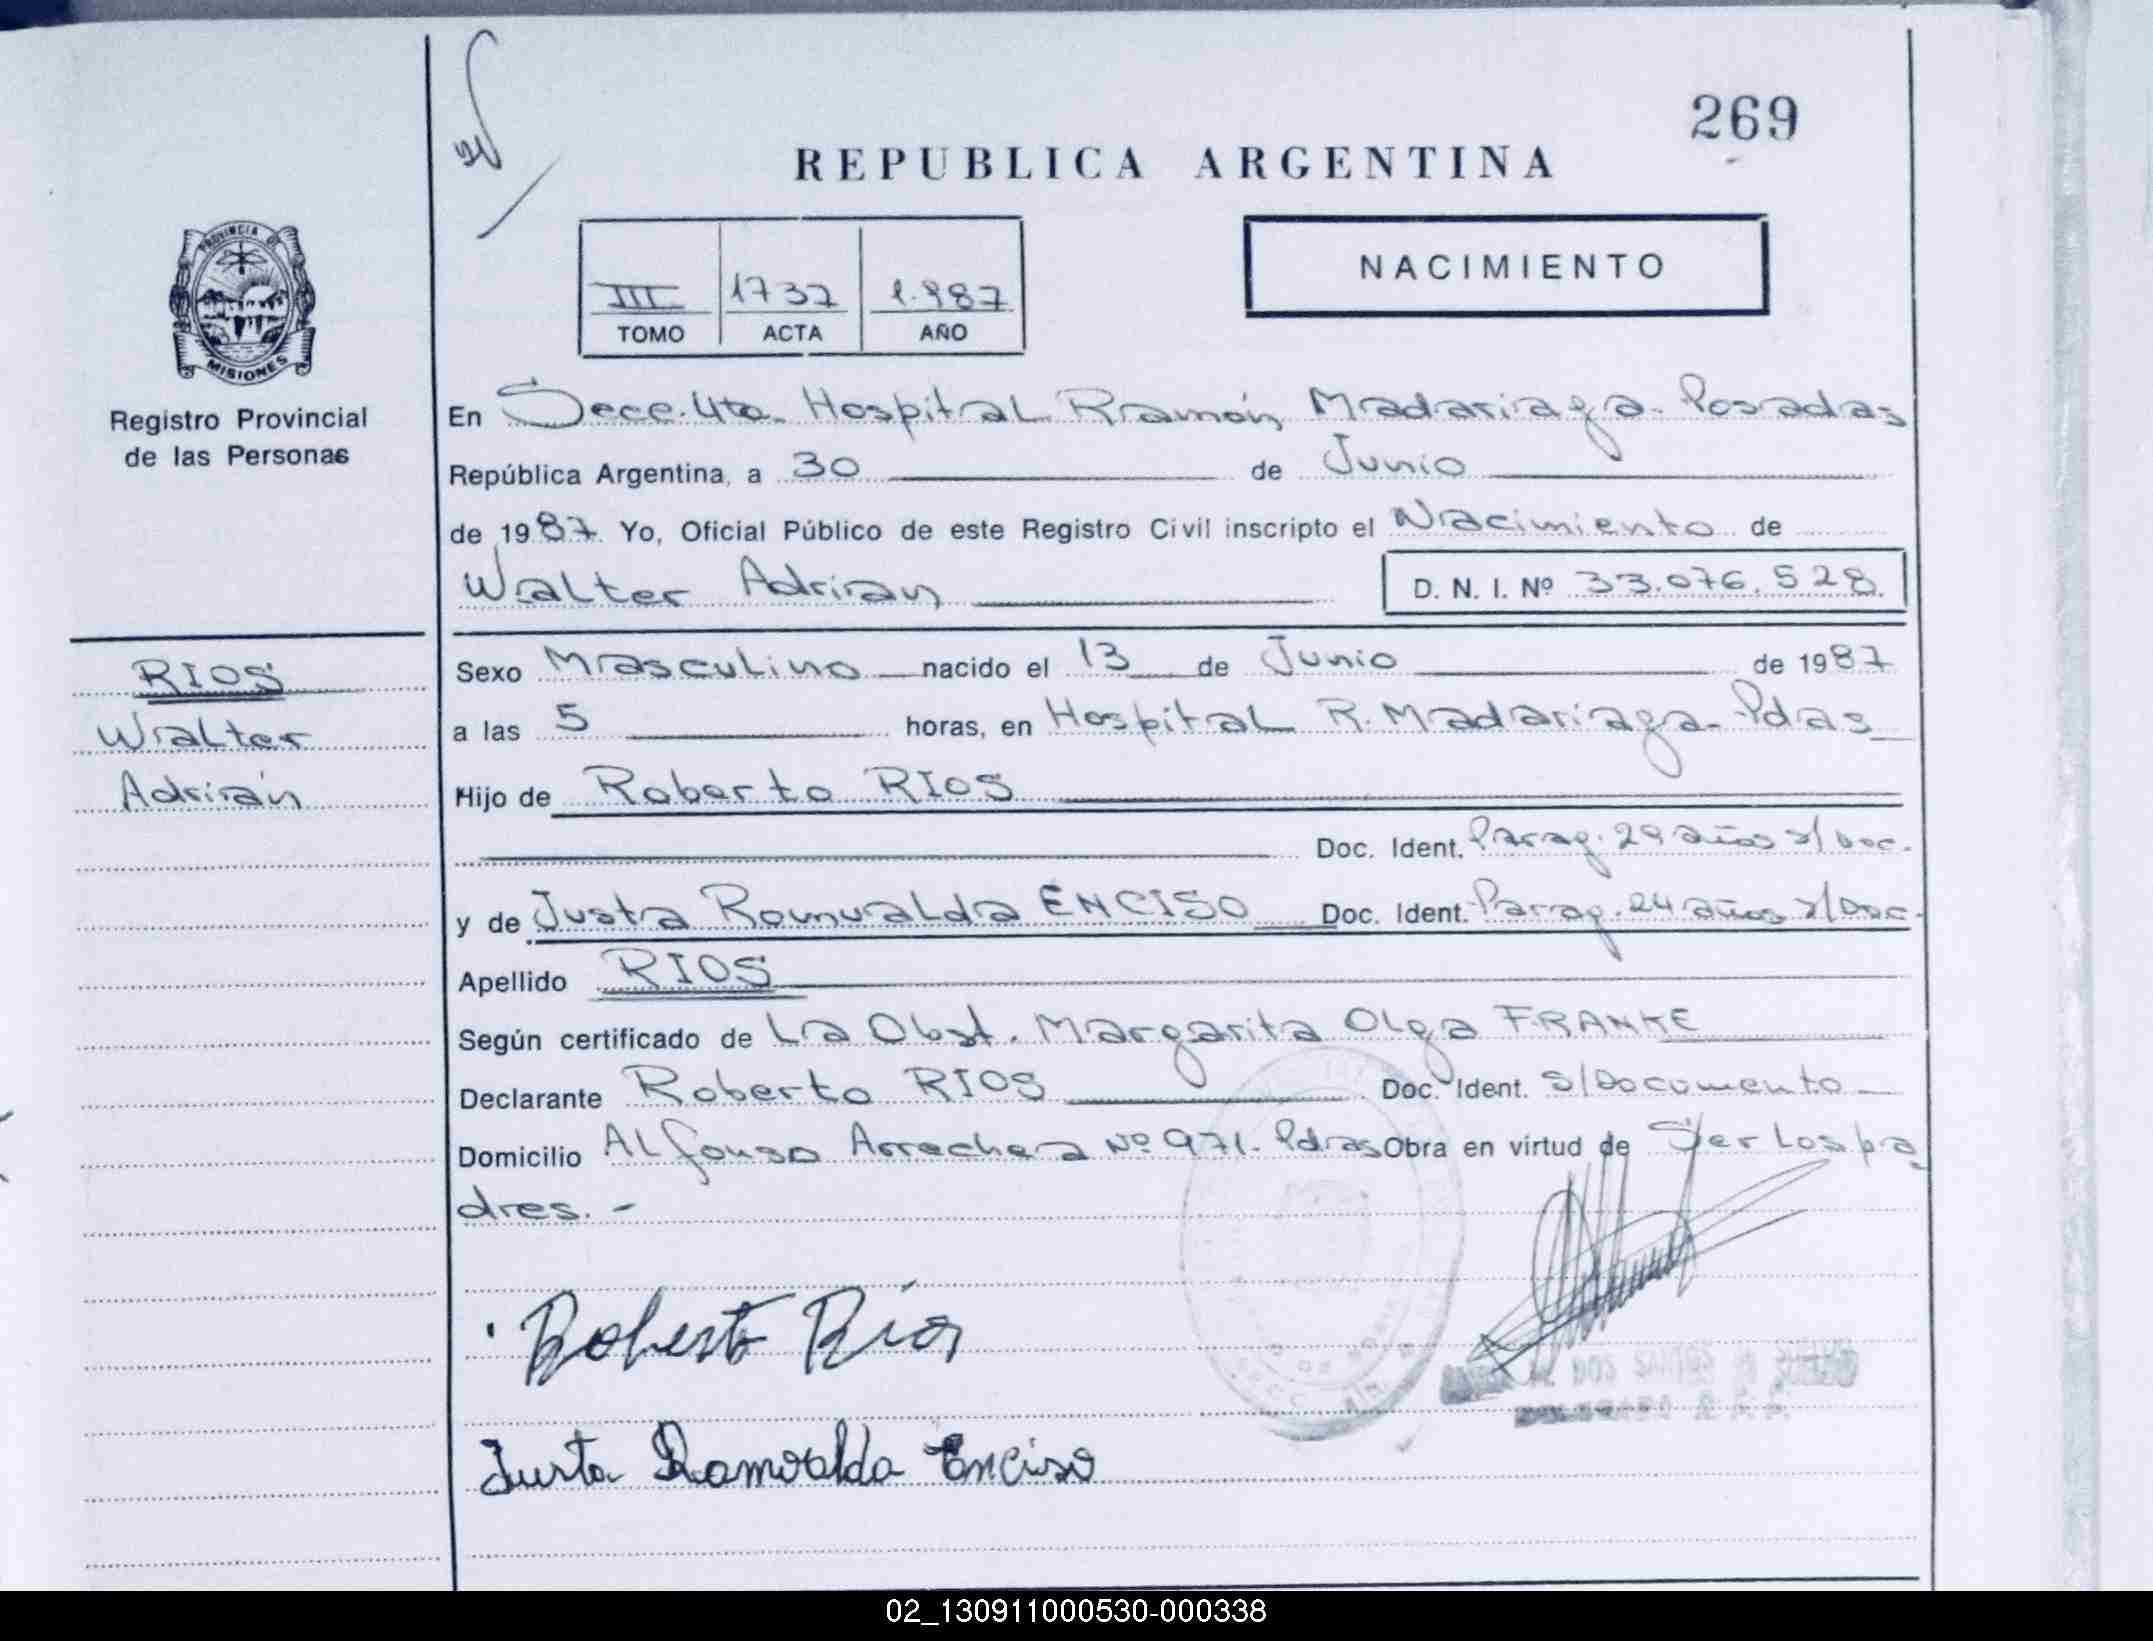 269
REPUBLICA ARGENTINA
NACIMIENTO
III 1737 1.987
TOMO ACTA AÑO
PROVINCIA DE
MISIONES
Registro Provincial
de las Personas
En Secc. 4ta. Hospital Ramón Madariaga - Posadas
República Argentina, a 30 de Junio
de 1987. Yo, Oficial Público de este Registro Civil inscripto el Nacimiento de
Walter Adrian D. N. I. Nº 33.076.528.
RIOS
Walter
Adrián
Sexo Masculino nacido el 13 de Junio de 1987
a las 5 horas, en Hospital R. Madariaga - Pdas
Hijo de Roberto RIOS
Doc. Ident. Parag. 29 años s/Doc.
y de Justa Romualda ENCISO Doc. Ident. Parag. 24 años s/Doc.
Apellido RIOS
Según certificado de La Obst. Margarita Olga FRANKE
Declarante Roberto RIOS Doc. Ident. s/Documento
Domicilio Alfonso Arrechea Nº 971. Pdas Obra en virtud de Ser los pa
dres. -
Roberto Ríos
Justa Romualda Enciso
02_130911000530-000338